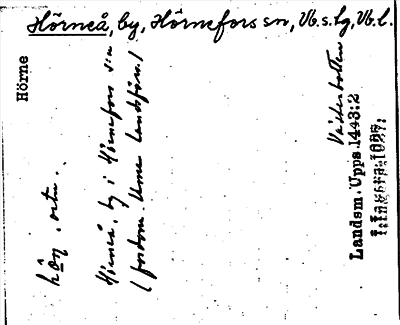 Hörneå, by, Hörnefors sn, Vb.s.lg, Vb.l.
Hörne
hön, ortn.
Hörneå, by i Hörnefors s:n
(fordom Umeå landsförs.)
Västerbotten
Landsm. Upps. 1443:2